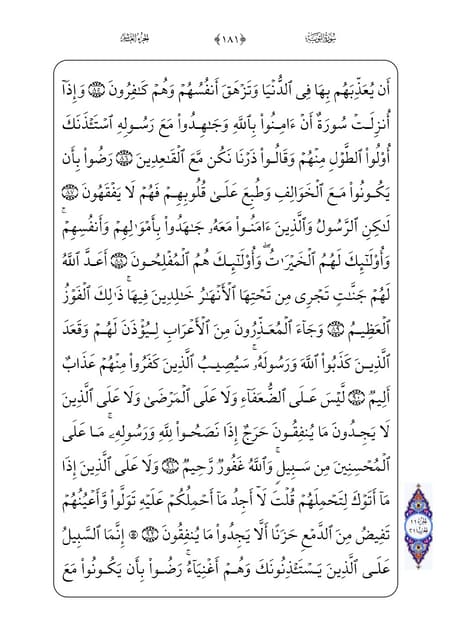 سورة التوبة ﴿١٨١﴾ الجزء العاشر
أَن يُعَذِّبَهُم بِهَا فِى الدُّنْيَا وَتَزْهَقَ أَنفُسُهُمْ وَهُمْ كَـٰفِرُونَ ٨٥ وَإِذَآ
أُنزِلَتْ سُورَةٌ أَنْ ءَامِنُوا۟ بِٱللَّهِ وَجَـٰهِدُوا۟ مَعَ رَسُولِهِ ٱسْتَـْٔذَنَكَ
أُو۟لُوا۟ ٱلطَّوْلِ مِنْهُمْ وَقَالُوا۟ ذَرْنَا نَكُن مَّعَ ٱلْقَـٰعِدِينَ ٨٦ رَضُوا۟ بِأَن
يَكُونُوا۟ مَعَ ٱلْخَوَالِفِ وَطُبِعَ عَلَىٰ قُلُوبِهِمْ فَهُمْ لَا يَفْقَهُونَ ٨٧
لَـٰكِنِ ٱلرَّسُولُ وَٱلَّذِينَ ءَامَنُوا۟ مَعَهُۥ جَـٰهَدُوا۟ بِأَمْوَٰلِهِمْ وَأَنفُسِهِمْ ۚ
وَأُو۟لَـٰٓئِكَ لَهُمُ ٱلْخَيْرَٰتُ ۖ وَأُو۟لَـٰٓئِكَ هُمُ ٱلْمُفْلِحُونَ ٨٨ أَعَدَّ ٱللَّهُ
لَهُمْ جَنَّـٰتٍ تَجْرِى مِن تَحْتِهَا ٱلْأَنْهَـٰرُ خَـٰلِدِينَ فِيهَا ۚ ذَٰلِكَ ٱلْفَوْزُ
ٱلْعَظِيمُ ٨٩ وَجَآءَ ٱلْمُعَذِّرُونَ مِنَ ٱلْأَعْرَابِ لِيُؤْذَنَ لَهُمْ وَقَعَدَ
ٱلَّذِينَ كَذَبُوا۟ ٱللَّهَ وَرَسُولَهُۥ ۚ سَيُصِيبُ ٱلَّذِينَ كَفَرُوا۟ مِنْهُمْ عَذَابٌ
أَلِيمٌ ٩٠ لَّيْسَ عَلَى ٱلضُّعَفَآءِ وَلَا عَلَى ٱلْمَرْضَىٰ وَلَا عَلَى ٱلَّذِينَ
لَا يَجِدُونَ مَا يُنفِقُونَ حَرَجٌ إِذَا نَصَحُوا۟ لِلَّهِ وَرَسُولِهِۦ ۚ مَا عَلَى
ٱلْمُحْسِنِينَ مِن سَبِيلٍ ۚ وَٱللَّهُ غَفُورٌ رَّحِيمٌ ٩١ وَلَا عَلَى ٱلَّذِينَ إِذَا
مَآ أَتَوْكَ لِتَحْمِلَهُمْ قُلْتَ لَآ أَجِدُ مَآ أَحْمِلُكُمْ عَلَيْهِ تَوَلَّوا۟ وَّأَعْيُنُهُمْ
تَفِيضُ مِنَ ٱلدَّمْعِ حَزَنًا أَلَّا يَجِدُوا۟ مَا يُنفِقُونَ ٩٢ ۞ إِنَّمَا ٱلسَّبِيلُ
عَلَى ٱلَّذِينَ يَسْتَـْٔذِنُونَكَ وَهُمْ أَغْنِيَآءُ ۚ رَضُوا۟ بِأَن يَكُونُوا۟ مَعَ